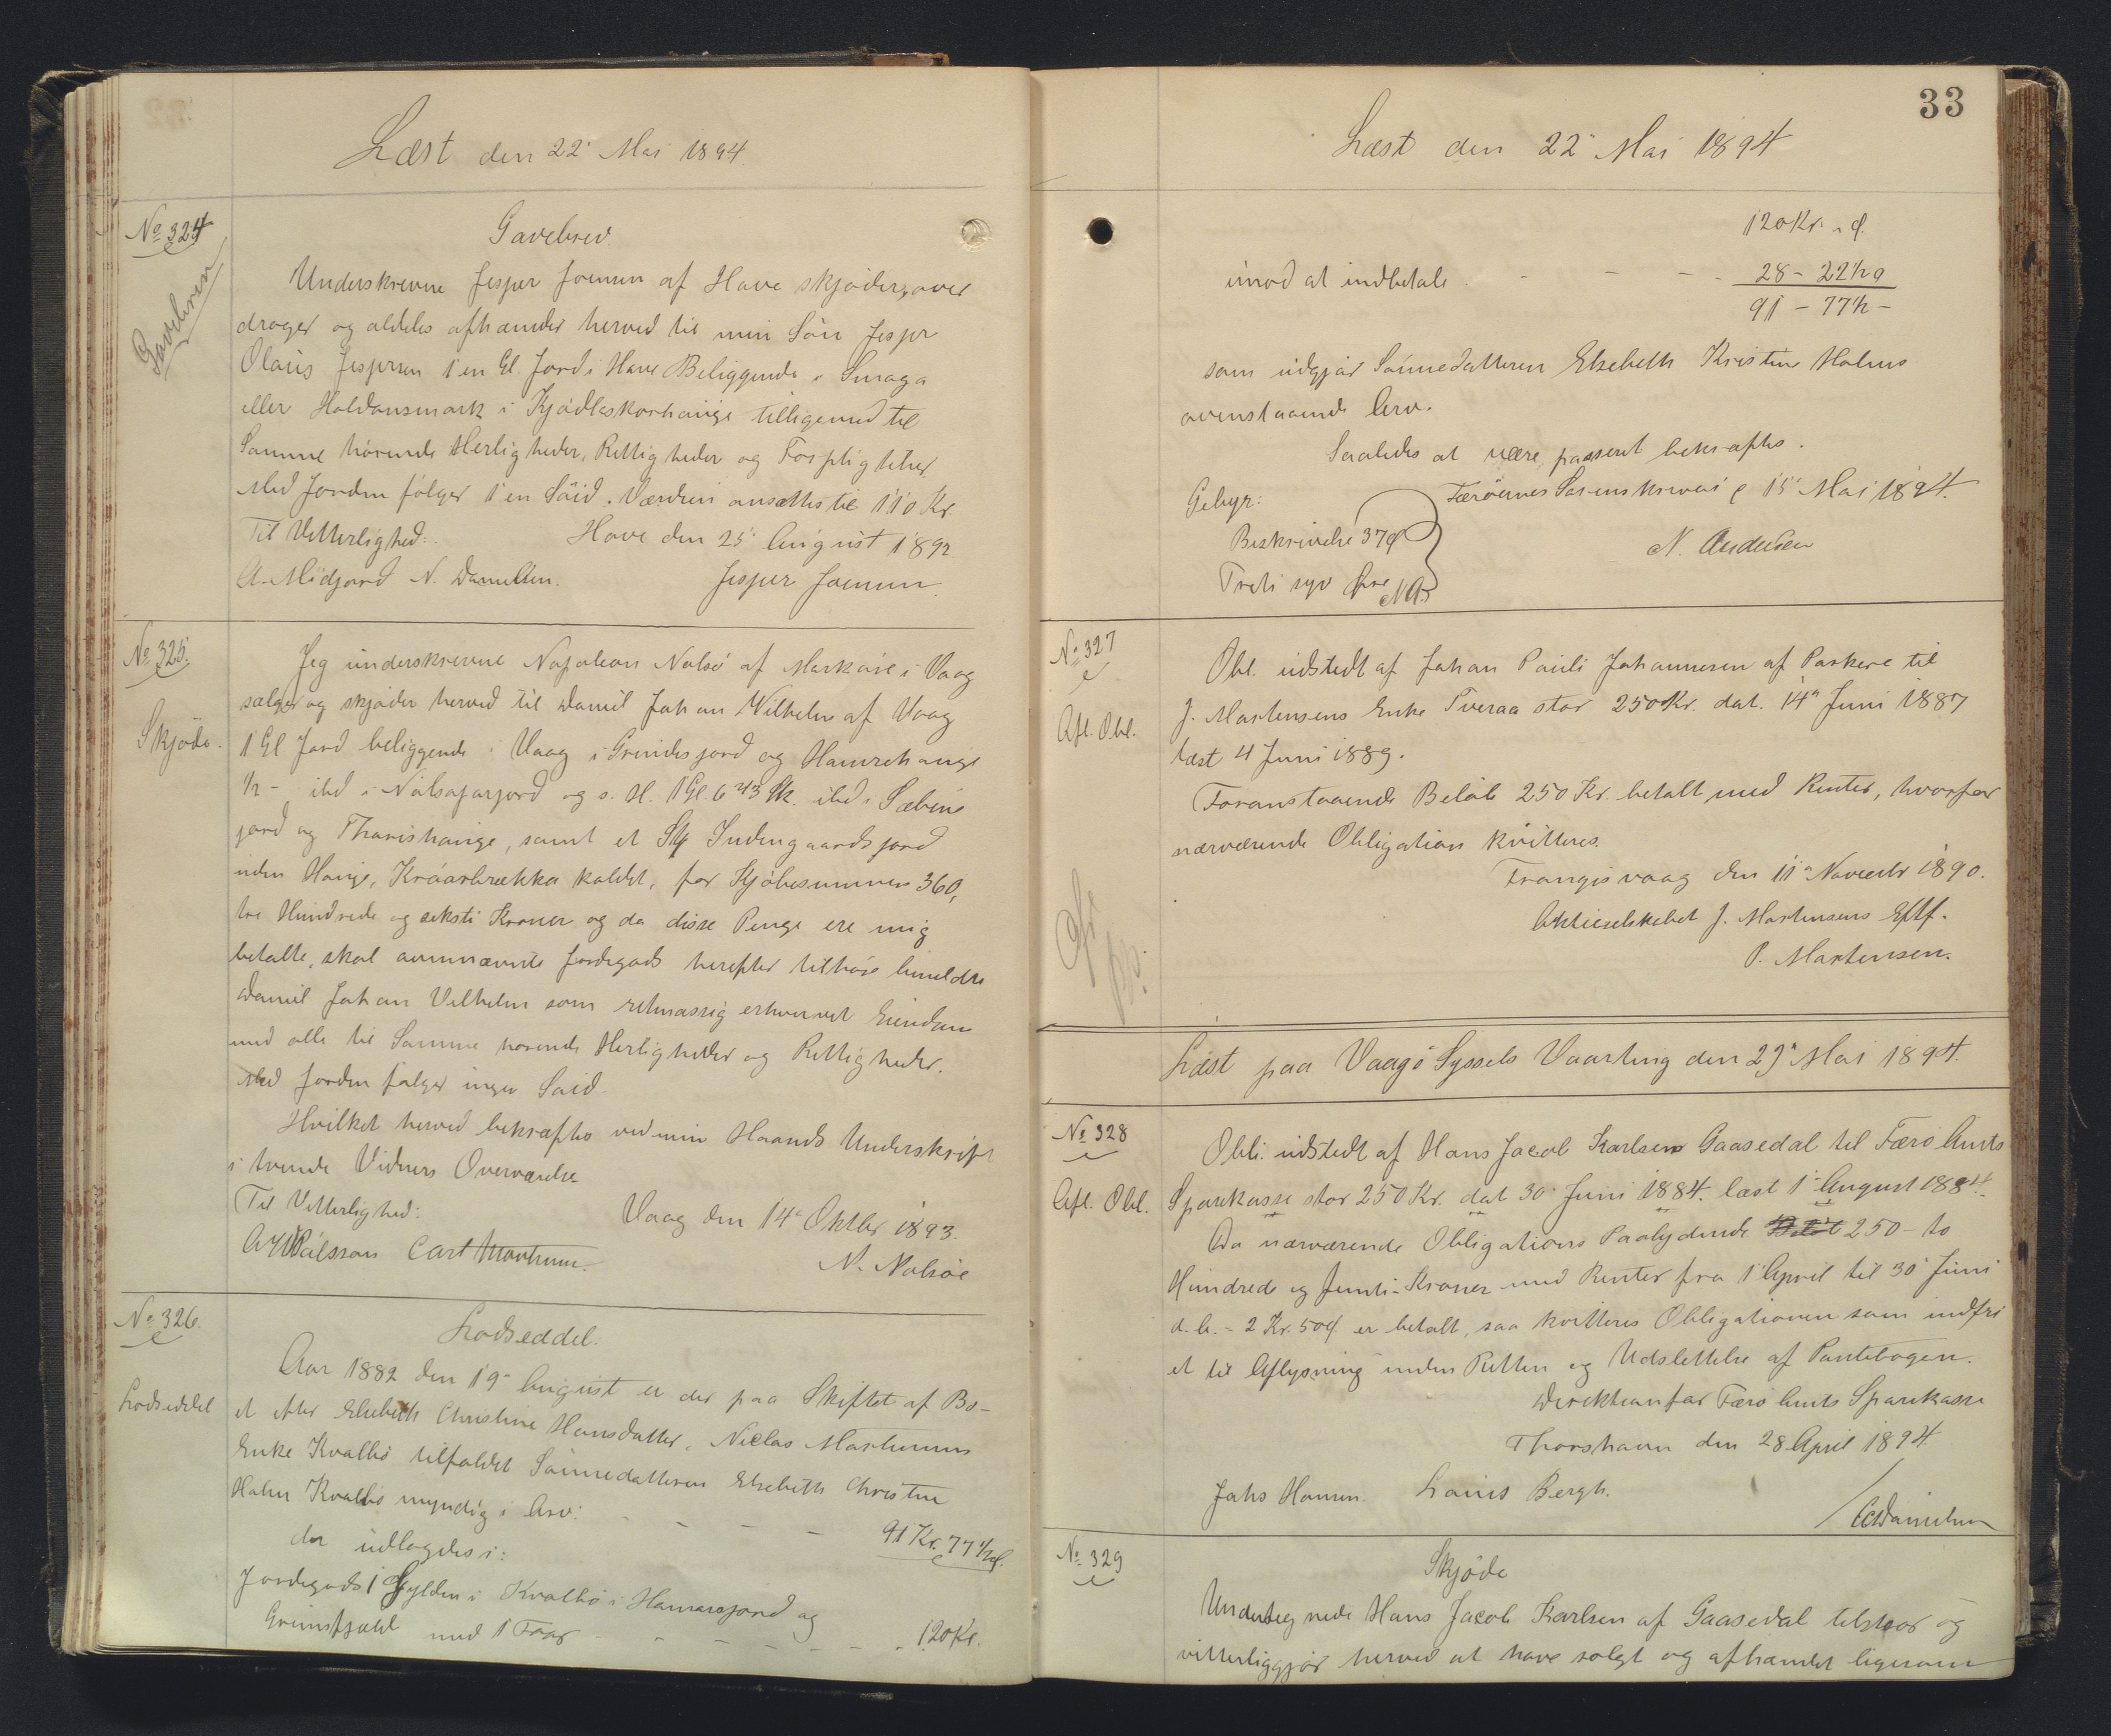 Læst den 22' Mai 1894.
No 324
Gavebrev
Gavebrev.
Underskrevne Jesper Joensen af Hove skjøder, over
drager og aldeles afhænder herved til min Søn Jesper
Olaus Jespersen 1 en Gl. Jord i Hove Beliggende i Smaga
eller Haldansmark i Kjødleskorhauge tilligemed til
Samme hørende Herligheder, Rettigheder og Forpligtelser
Med Jorden følger 1 en Söid. Værdien ansættes til 110 Kr
Til Vitterlighed: Hove den 25' August 1892
A. Midjord N. Danielsen. Jesper Joensen.
No 325.
Skjöde.
Jeg underskrevne Napoleon Nolsö af Markare i Vaag
sælger og skjøder herved til Daniel Johan Wilhelm af Vaag
1 Gl Jord beliggende i Vaag i Grindesjord og Hamrehauge
1/2 - ibd i Nolsøjarjord og s. St. 1 Gl. 6 2/3 Sk. ibd. i Sæbine
jord og Thorishauge, samt et Stk Indengaardsjord
uden Hauge, Kráarbrekka kaldet, for Kjøbesummen 360,
tre Hundrede og seksti Kroner og da disse Penge ere mig
betalte, skal ovennævnte Jordegods herefter tilhøre bemeldte
Daniel Johan Vilhelm som retmæssig erhvervet Eiendom
med alle til Samme hørende Herligheder og Rettigheder.
Med Jorden følger ingen Söid.
Hvilket herved bekræftes ved min Haands Underskrift
i tvende Vidners Overværelse
Til Vitterlighed: Vaag den 14' Oktbr 1893.
Pálsson Carl Mortensen. N. Nolsöe
No 326.
Lodseddel
Lodseddel.
Aar 1882 den 19' August er der paa Skiftet af Bo-
et efter Elsebeth Christine Hansdatter, Niclas Mortensens
Enke Kvalbö tilfaldet Sönnedatteren Elsebeth Christine
Holm Kvalbö myndig i Arv: - - - - 91 Kr. 77 1/2 ø.
der udlagdes i:
Jordegods 1 Gylden i Kvalbö i Hamarsjord og
Grimsfjæld med 1 Faar - - - - - - - 120 Kr.
33
Læst den 22' Mai 1894
120 Kr. " Ø.
imod at indbetale - - - - 28 - 22 1/2 Ø
91 - 77 1/2 -
som udgjør Sönnedatteren Elsebeth Kristine Holms
ovenstaaende Arv.
Saaledes at være passeret bekræftes.
Færøernes Sorenskriveri p 15' Mai 1894.
Gebyr:
Beskrivelse 37 Ø
N. Andersen
Treti syv Øre NA.
No 327
Afl. Obl.
Obl. udstedt af Johan Pauli Johannesen af Porkere til
J. Mortensens Enke Tveraa stor 250 Kr. dat. 14' Juni 1887
læst 4 Juni 1889.
Foranstaaende Beløb 250 Kr. betalt med Renter, hvorfor
nærværende Obligation kvitteres.
Trangisvaag den 11' Novembr 1890.
Aktieselskabet J. Mortensens Eftf.
P. Mortensen.
Læst paa Vaagö Syssels Vaarting den 29' Mai 1894.
No 328
Afl. Obl.
Obli. udstedt af Hans Jacob Karlsen Gaasedal til Færö Amts
Sparekasse stor 250 Kr. dat 30' Juni 1884. læst 1' August 1884.
Da nærværende Obligations Paalydende 250 - to
Hundrede og femti - Kroner med Renter fra 1' April til 30' Juni
d. A. - 2 Kr. 50 Ø er betalt, saa kvitteres Obligationen som indfri
et til Aflysning inden Retten og Udslettelse af Pantebogen.
Direktionen for Færö Amts Sparekasse
Thorshavn den 28 April 1894
Johs Hansen. Louis Bergh.
Danielsen
No 329
Skjöde
Undertegnede Hans Jacob Karlsen af Gaasedal tilstaar og
vitterliggjør herved at have solgt og afhændet ligesom